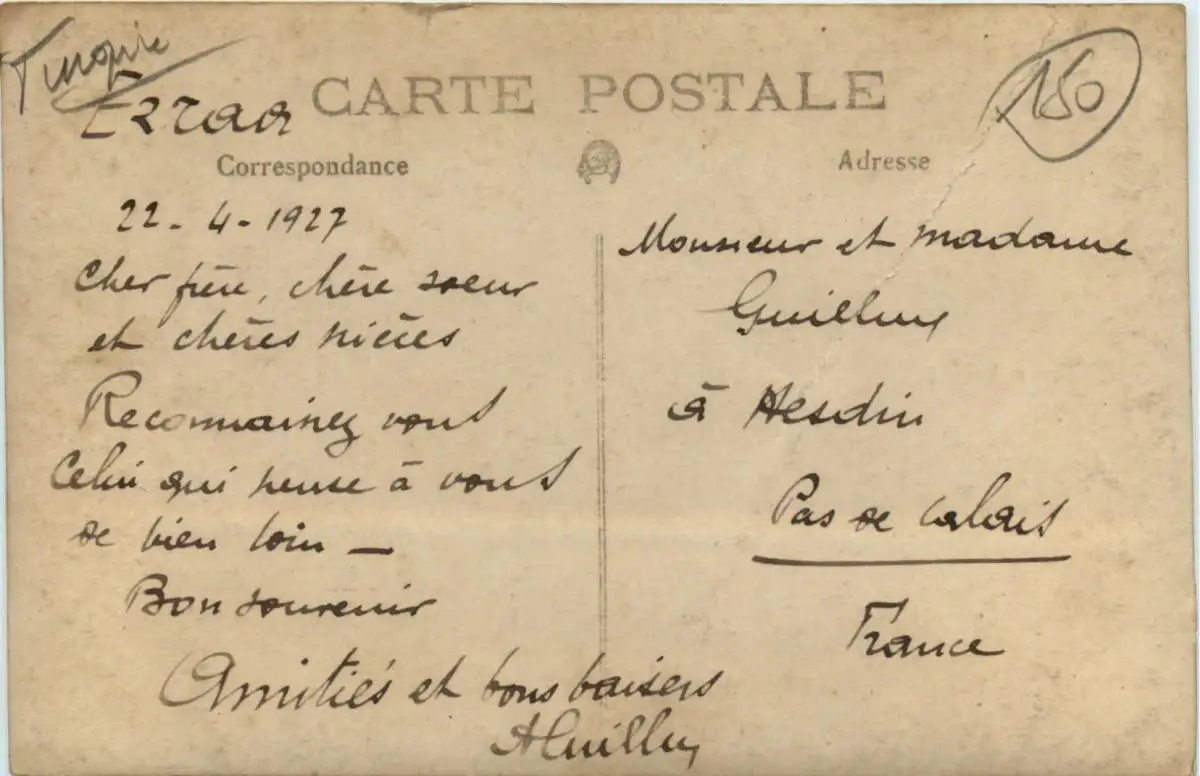 Turquie
CARTE POSTALE
150
Ezraa
Correspondance
Adresse
22-4-1927
Cher frère, chère soeur
et chères nièces
Reconnaissez vous
Celui qui pense à vous
de bien loin —
Bon souvenir
Amitiés et bons baisers
AGuilluy
Monsieur et madame
Guilluy
à Hesdin
Pas de Calais
France